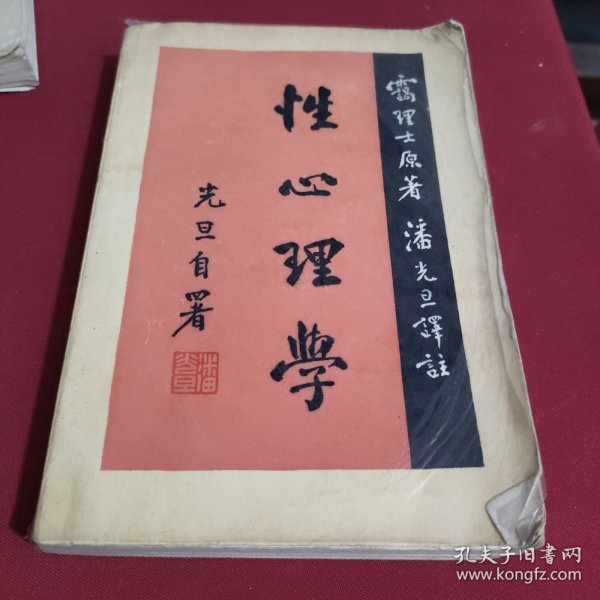 霭理士原著 潘光旦譯註
性心理學
光旦自署
潘光旦
孔夫子旧书网
www.kongfz.com